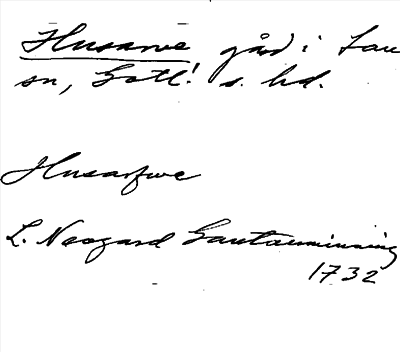 Husarve gård i Lau
sn, Gotl. s. hd.
Husarfwe
L. Neogard Gautauminning
1732